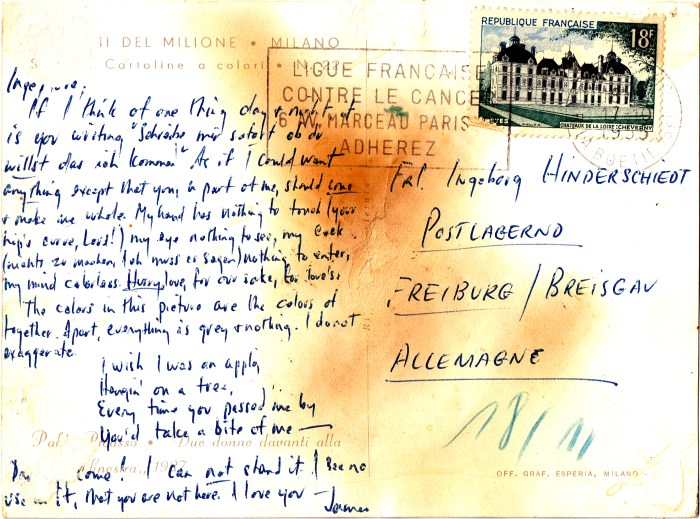 II DEL MILIONE • MILANO
Cartoline a colori • N. 22
If I think of one thing day & night, it
is you writing "Schreibe mir sofort ob du
willst das ich komme." As if I could want
anything except that you, a part of me, should come
& make me whole. My hand has nothing to touch (your
hip's curve, Lois!) my eye nothing to see, my cock
(nichts zu machen, ich muss es sagen) nothing to enter,
my mind colorless. Hurry love, for our sake, for love's!
The colors in this picture are the colors of
together. Apart, everything is grey & nothing. I do not
exaggerate.
I wish I was an apple,
Hangin' on a tree,
Every time you passed me by
You'd take a bite of me —
Pablo Picasso • Due donne davanti alla
finestra, 1927
come! I can not stand it. I see no
use in it, that you are not here. I love you —
REPUBLIQUE FRANÇAISE
18F
CHATEAUX DE LA LOIRE : CHEVERNY
LIGUE FRANÇAISE
CONTRE LE CANCE
6 AV. MARCEAU PARIS
ADHEREZ
Frl. Ingeborg HINDERSCHIEDT
POSTLAGERND
FREIBURG / BREISGAU
ALLEMAGNE
18/11
OFF. GRAF. ESPERIA, MILANO